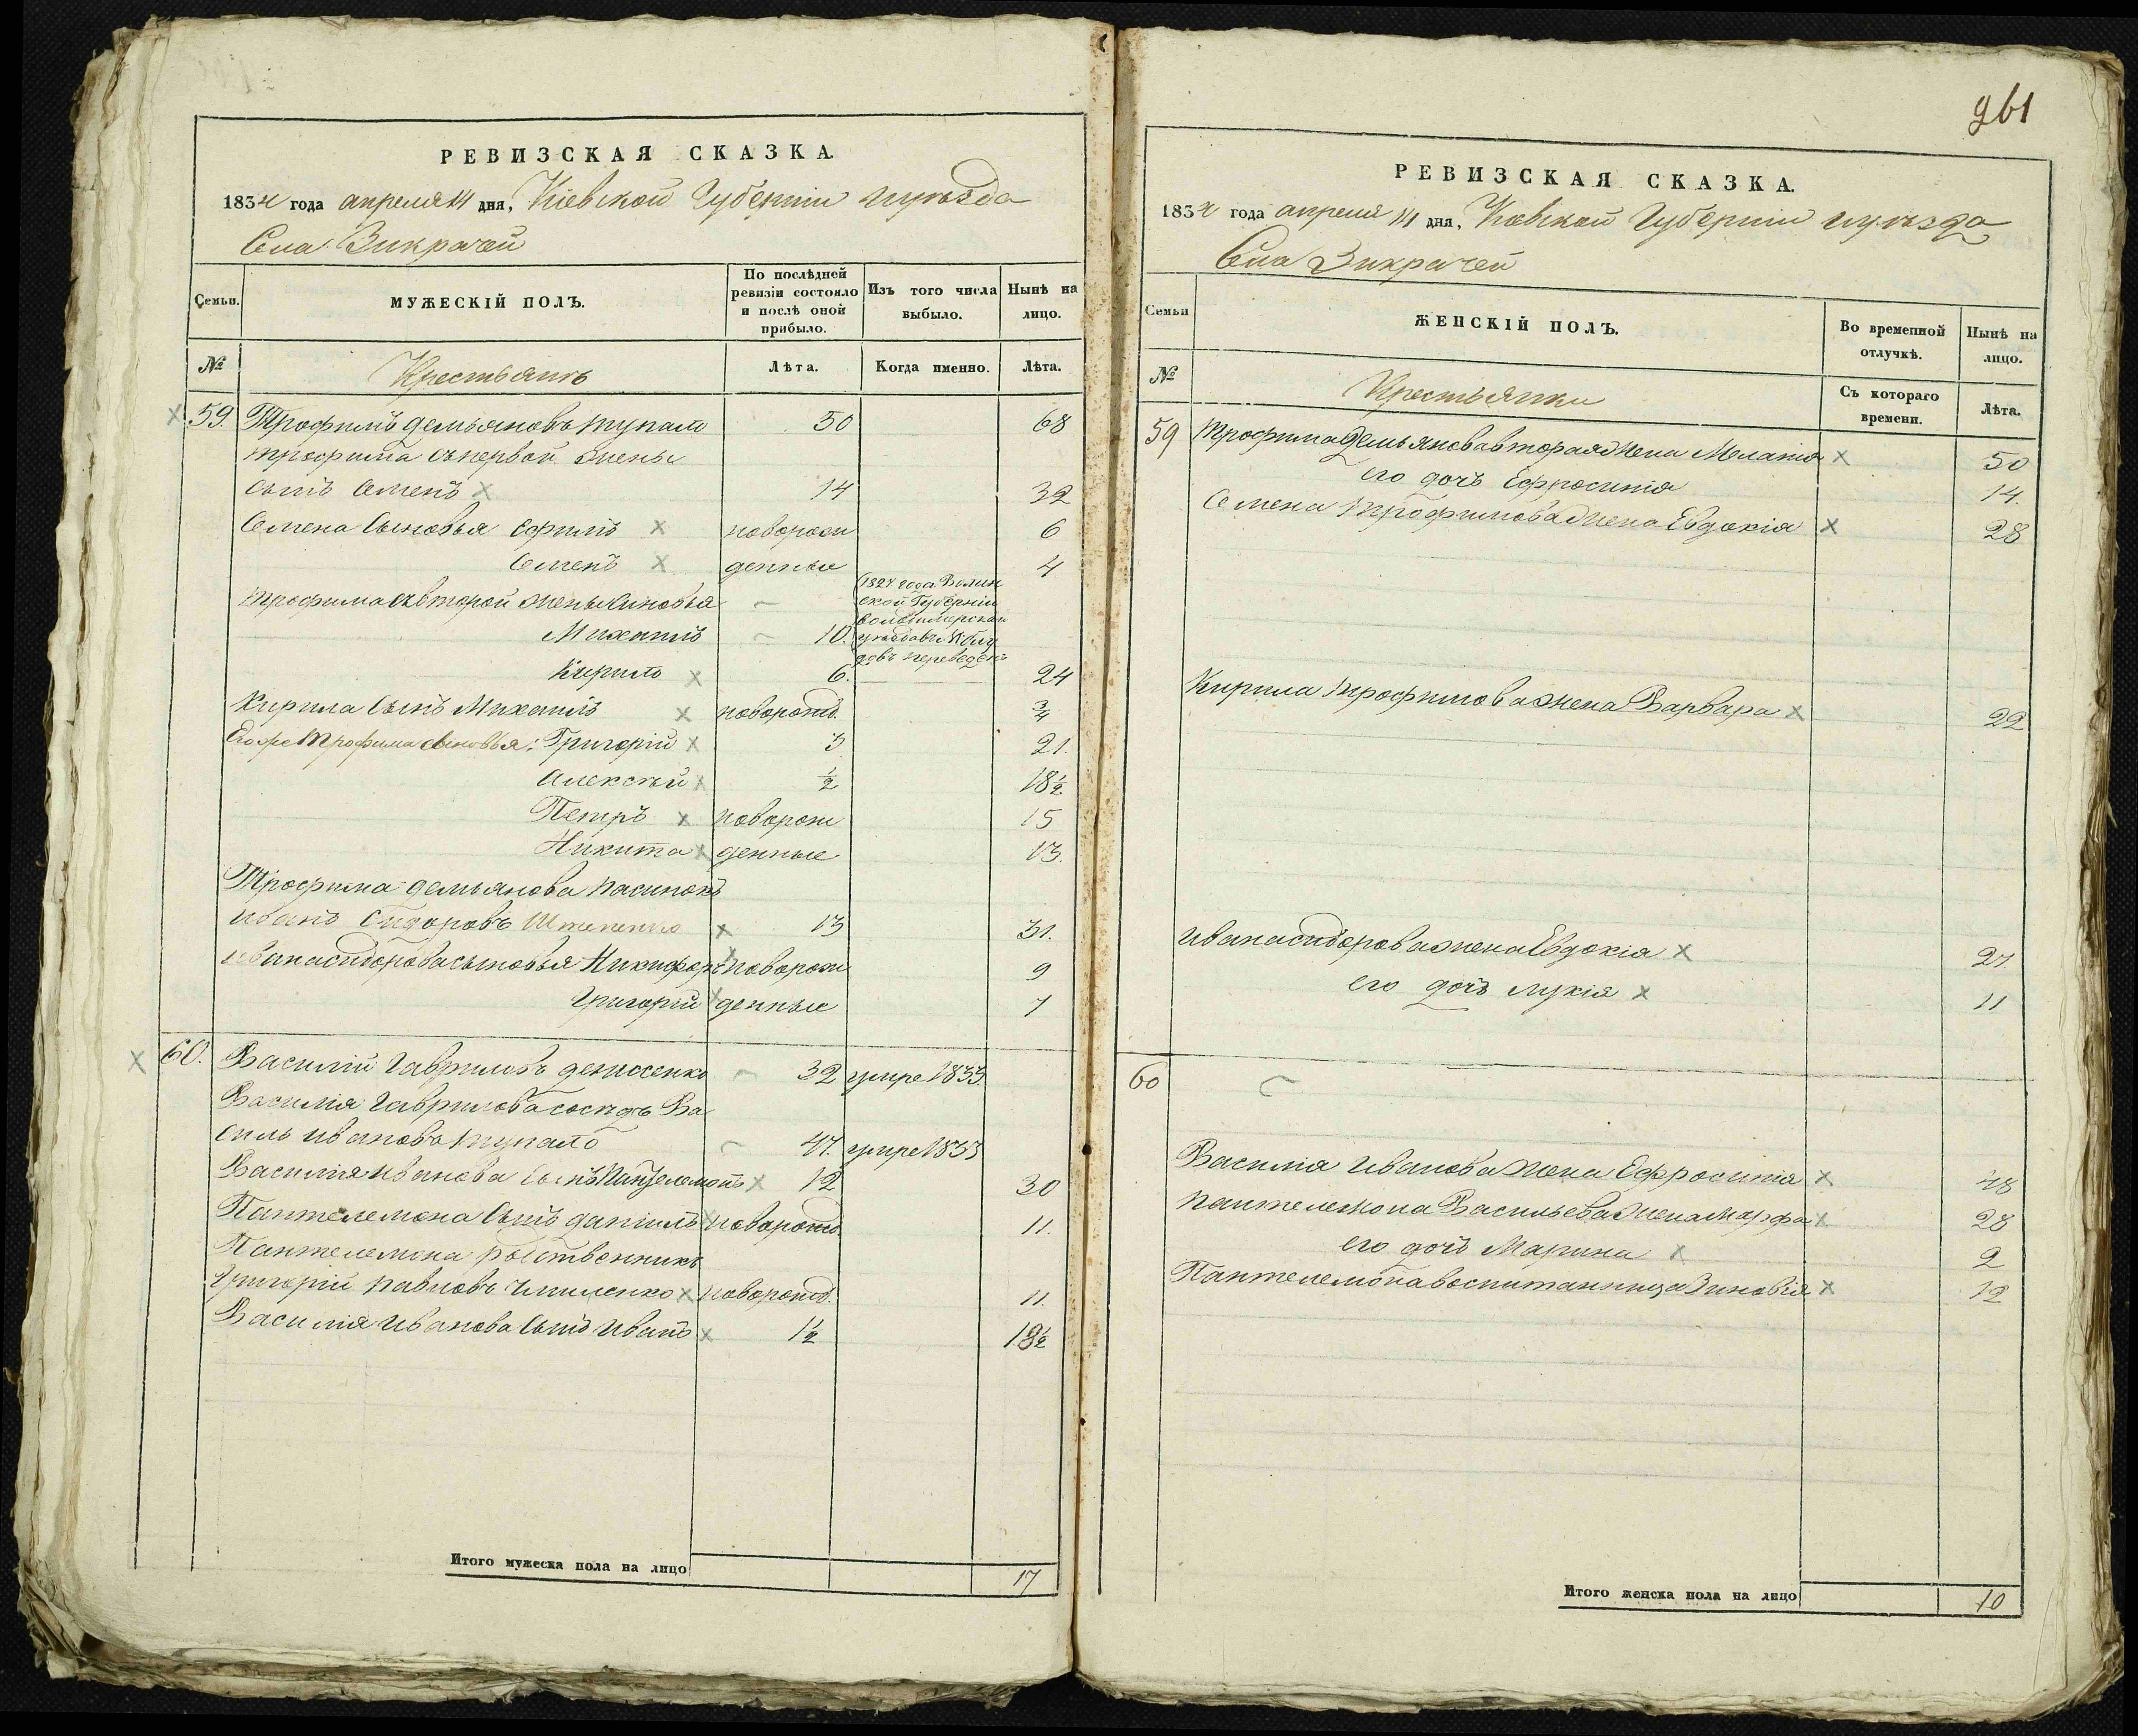 РЕВИЗСКАЯ СКАЗКА.
1834 года апреля 14 дня, Кіевской Губерніи и уѣзда
Села Викрачей
Семьи.
МУЖЕСКІЙ ПОЛЪ.
По послѣдней ревизіи состояло и послѣ оной прибыло.
Изъ того числа выбыло.
Нынѣ на лицо.
№
Крестьянъ
Лѣта.
Когда именно.
Лѣта.
59. Трофимъ Демьяновъ Тупало 50 68
Трофима съ первой жены
сынъ Семенъ 14 32
Семена Сыновья Ефимъ поворож 6
Семенъ денные 4
Трофима съ второй жены синовья
Михаилъ 10. 1827 года Волин
ской Губерніи
переведенъ
Кирило 6. 24
Кирила Сынъ Михаилъ новорожд. 3/4
Егоже Трофима сыновья: Григорій 3 21.
Алексѣй 1/2 18 1/2
Петръ новорож 15
Никита денные 13.
Трофима Демьянова пасинокъ
Иванъ Сидоровъ 13 31.
Ивана Сидорова сыновья Никифоръ новорож 9
Григорій денные 7
60. Василій Гавриловъ Денисенко 32 умре 1833.
Василія Гаврилова сосѣдъ Ва
силь Ивановъ Тупало 47. умре 1833
Василія Иванова Сынъ Пантелемонъ 12 30
Пантелемона Сынъ Даніилъ новорожд. 11.
Пантелемона родственникъ
Григорій Павловъ новорожд. 11.
Василія Иванова Сынъ Иванъ 1/2 18 1/2
Итого мужеска пола на лицо 17
961
РЕВИЗСКАЯ СКАЗКА.
1834 года апреля 14 дня, Кіевской Губерніи и уѣзда
Села Викрачей
Семьи
ЖЕНСКІЙ ПОЛЪ.
Во временной отлучкѣ.
Нынѣ на лицо.
№
Крестьянки
Съ котораго времени.
Лѣта.
59 Трофима Демьянова вторая жена Меланія 50
его дочь Ефросинія 14.
Семена Трофимова жена Евдокія 28
Кирила Трофимова жена Варвара 22
Ивана Сидорова жена Евдокія 27.
его дочь Лукія 11
60
Василія Иванова жена Ефросинія 48
Пантелемона Васильева жена Марфа 28
его дочь Марина 2
Пантелемона воспитанница Зиновія 12
Итого женска пола на лицо 10